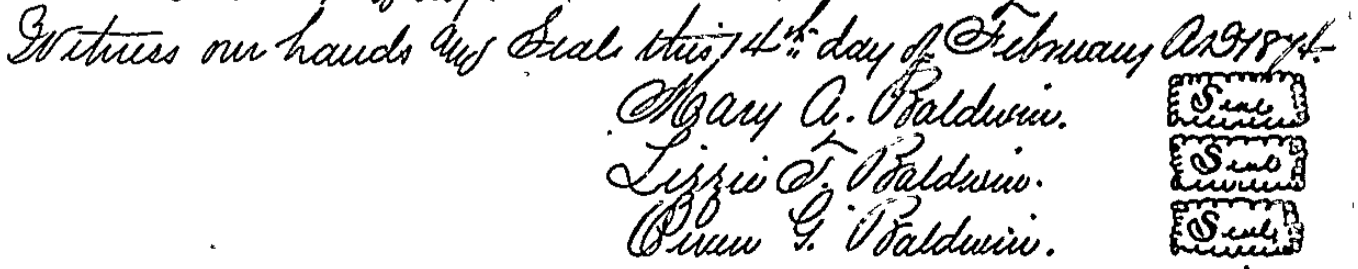 Witness our hands and Seals this 14th day of February AD 1874.
Mary A. Baldwin. Seal
Lizzie F. Baldwin. Seal
Owen G. Baldwin. Seal